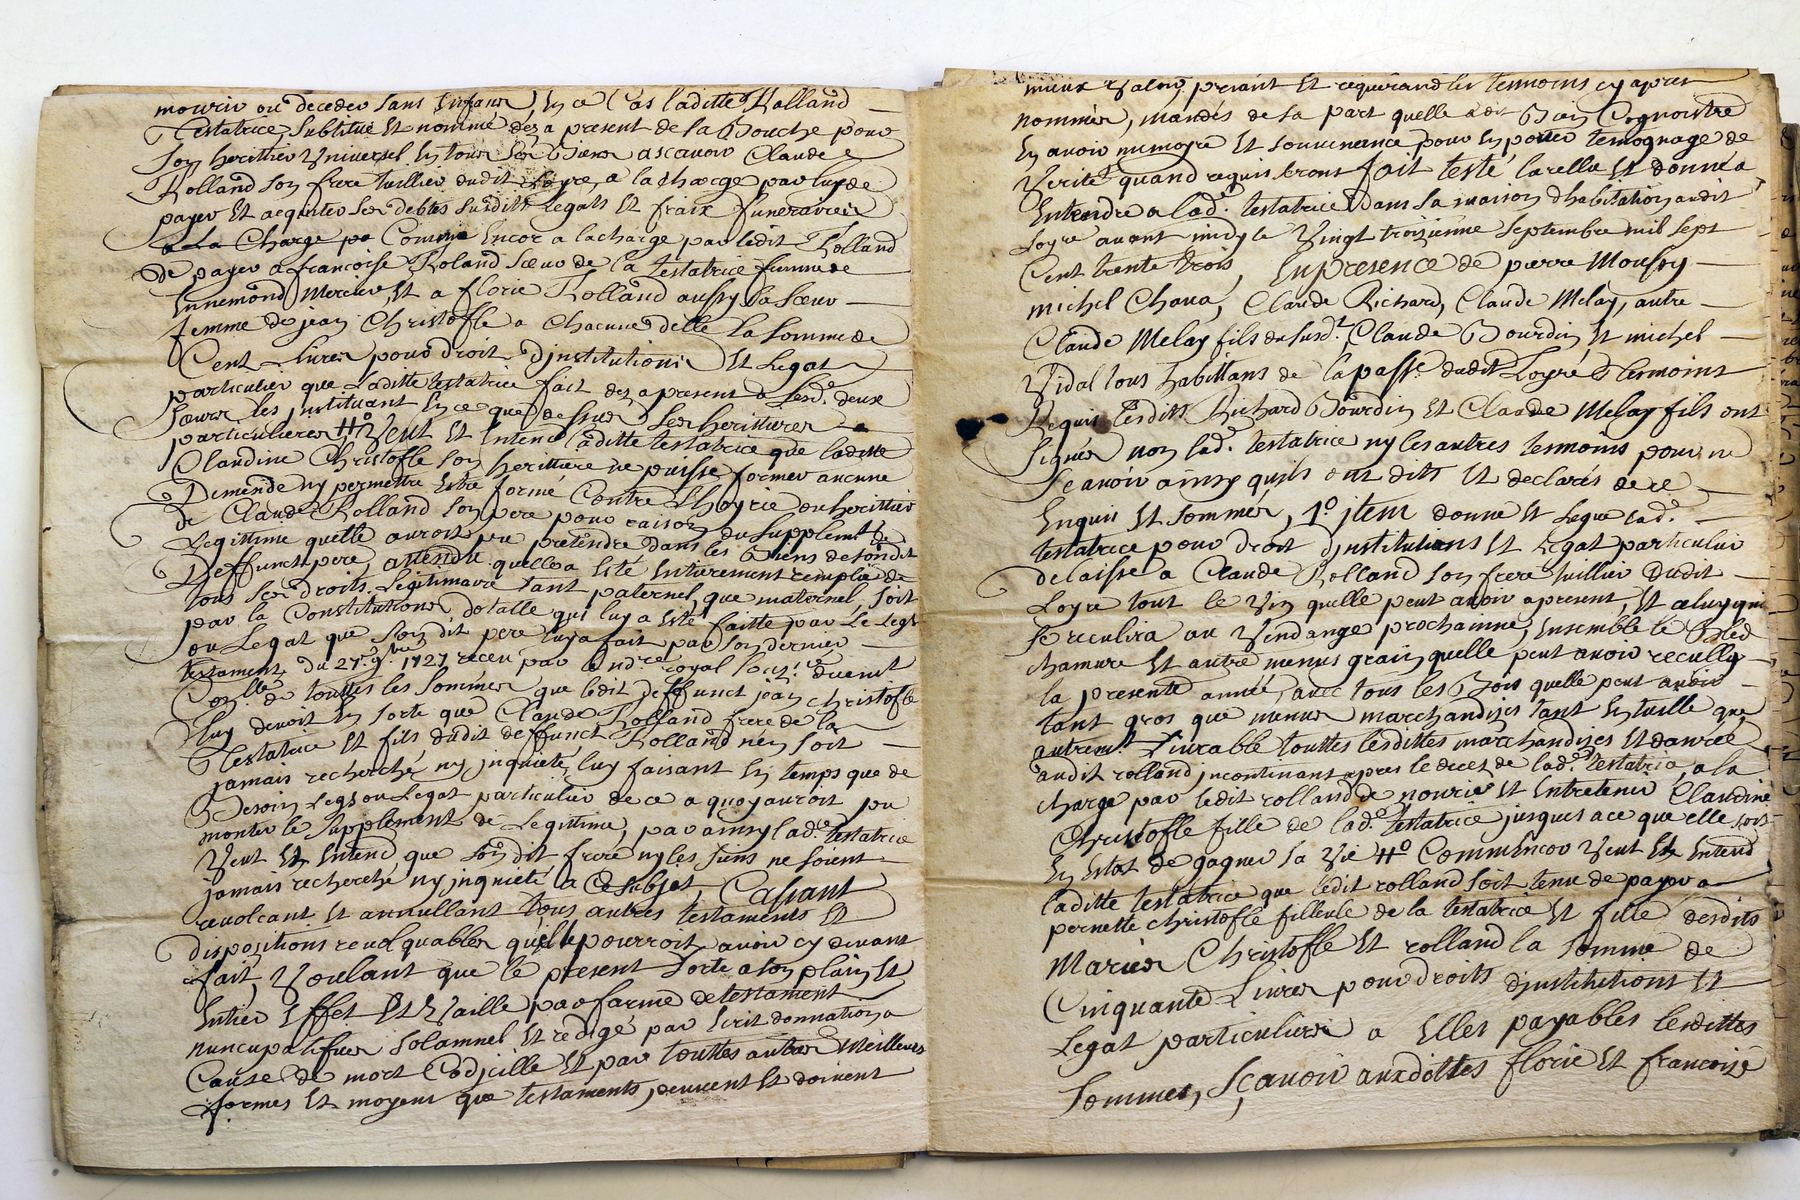 mourir ou deceder sans Enfans, En ce Cas laditte Rolland
Testatrice, Substitue Et nomme dez a present de sa Bouche pour
Son herittier Universel En tous ses Biens ascavoir Claude
Rolland son frere tuillier dudit Loyre, a la charge par luy de
payer Et acquiter ses debtes susdits Legats Et fraix funeraires
a La Charge pa Comme Encor a lacharge par ledit Rolland
De payer a francoise Roland sœur de la testatrice femme de
Ennemond Mercier, Et a florie Rolland aussy sa sœur
femme de jean Christofle a Chacune delle la somme de
Cent Livres pour droit Djnstitutions Et Legat
particulier que Laditte testatrice fait dez apresent a Lesd. deux
sœurs les jnstituant En ce que dessus Ses herittieres
particulieres #o Veut Et Entend laditte testatrice que laditte
Claudine Christofle son herittiere ne puisse former aucune
Demande ny permettre Estre formé Contre Lhoyrie ou herittier
de Claude Rolland son pere pour raison du Supplemt de
Legittime quelle auroit pu pretendre dans les Biens de sondit
Deffunct pere, attendu quelle a Esté Entierement remplie de
tous ses droits Legitimaire tant paternel que maternel, soit
par la Constitution dotalle qui luy a Esté faitte par Le Legs
ou Legat que son dit pere luy a fait par son dernier
testament du 27e 9bre 1727 receu par le nore royal
de touttes les sommes que ledit Deffunct jean Christofle
luy devoit En sorte que Claude Rolland frere de la
Testatrice Et fils dudit deffunct Rolland n'en soit
jamais recherché ny jnquieté, luy faisant En temps que de
Besoin Legs ou Legat particulier de ce a quoy auroit pu
monter le Supplement de Legittime, par ainsy lade testatrice
Veut Et Entend que sondit frere ny les siens ne soient
jamais recherché ny jnquieté a Ce subjet, Cassant
revolcant Et annullant tous autres testaments Et
dispositions revolquables qu'elle pourroit avoir cy devant
fait, Voulant que le present sorte a son plain Et
Entier Effet Et Vaille par forme de testament
nuncupatifues solamnel Et redigé par Ecrit donnation a
Cause de mort Codjcille Et par touttes autres Meilleures
formes Et moyens que testaments peuvent Et doivent
mieux Valoir, priant Et requerand les temoins cy apres
nommés, mandés de sa part quelle a dit Bien Cognoistre
En avoir memoyre Et souvenance pour En porter temognage de
Verité quand requis seront fait testé larellu Et donné a
Entendre a lade. testatrice Dans sa maison dhabitation audit
Loyre avant midy le Vingt troizieme Septembre mil sept
Cent trente trois, En presence de pierre Moussy
michel Chana, Claude Richard, Claude Melay, autre
Claude Melay fils du susdt. Claude Bourdin Et michel
Vidal tous habittans de la passe. dudit Loyre Tesmoins
Requis Lesdits Richard Bourdin Et Claude Melay fils ont
Signés non lade. testatrice ny les autres temoins pour ne
Scavoir ainsy quils ont dits Et declarés de ce
Enquis Et Sommés, 1o jtem donne Et Legue lade.
testatrice pour droit djnstitutions Et Legat particulier
delaisse a Claude Rolland son frere tuillier dudit
Loyre tout le Vin quelle peut avoir apresent, Et celuy qui
se reculira au Vendange prochainne, Ensemble le Bled
chamure Et autre menus grain quelle peut avoir recully
la presente année, avec tous les Bois quelle peut avoir
tant gros que menus marchandizes tant En tuille que
autremt Livrable touttes lesdittes marchandizes Et danrée
audit rolland jncontinant apres le deces de lade. testatrice, a la
charge par ledit rolland de nourir Et Entretenir Claudine
Christofle fille de lade testatrice jusques a ce que elle soit
En Estat de gagner sa Vie #o Comm'Encor Veut Et Entend
laditte testatrice que ledit rolland soit tenu de payer a
pernette christofle filleule de la testatrice Et fille desdits
Mariés Christofle Et rolland la somme de
Cinquante Livres pour droits djnstitutions Et
Legat particuliers a Elles payables lesdittes
Sommes, Sçavoir auxdittes florie Et francoise